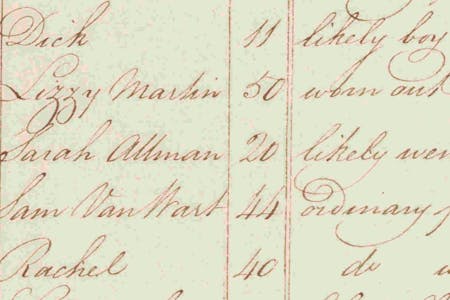 Dick 11 likely boy
Lizzy Martin 50 worn out
Sarah Allman 20 likely wen
Sam Van Wart 44 ordinary
Rachel 40 do